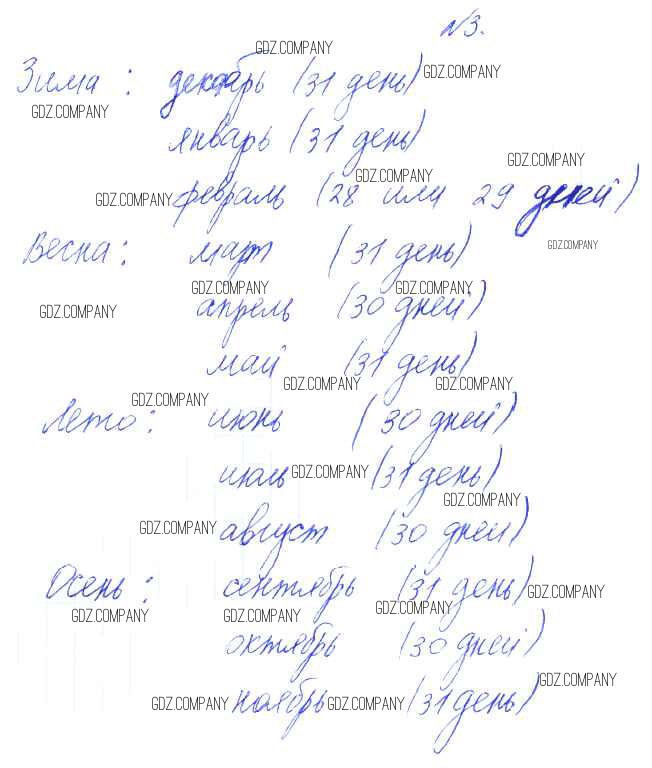 №3.
GDZ.COMPANY
Зима: декабрь (31 день) GDZ.COMPANY
GDZ.COMPANY
январь (31 день)
GDZ.COMPANY
GDZ.COMPANY
GDZ.COMPANY февраль (28 или 29 дней)
Весна: март (31 день) GDZ.COMPANY
GDZ.COMPANY GDZ.COMPANY
GDZ.COMPANY апрель (30 дней)
май (31 день)
GDZ.COMPANY GDZ.COMPANY
GDZ.COMPANY
Лето: июнь (30 дней)
июль GDZ.COMPANY (31 день)
GDZ.COMPANY
GDZ.COMPANY август (30 дней)
Осень: сентябрь (31 день) GDZ.COMPANY
GDZ.COMPANY GDZ.COMPANY GDZ.COMPANY
октябрь (30 дней)
GDZ.COMPANY
GDZ.COMPANY ноябрь GDZ.COMPANY (31 день)